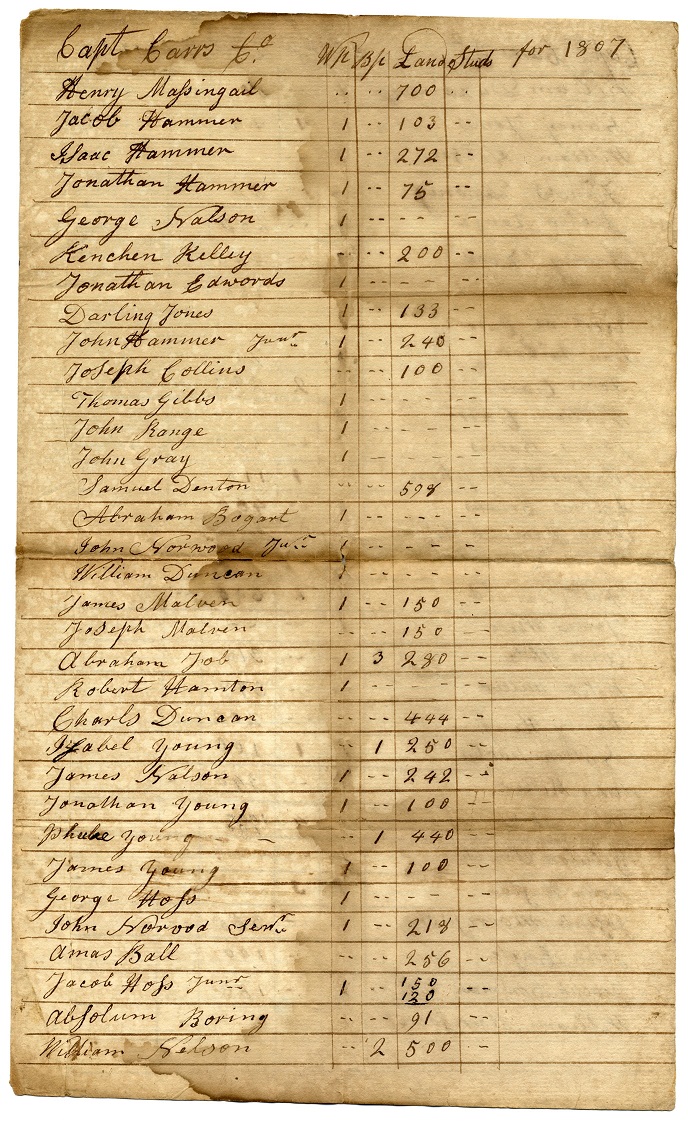 Capt Carrs Co. Wp Bp Land Studs for 1807
Henry Massingail -- -- 700 --
Jacob Hammer 1 -- 103 --
Isaac Hammer 1 -- 272 --
Jonathan Hammer 1 -- 75 --
George Nalson 1 -- -- --
Kenchen Kelley -- -- 200 --
Jonathan Edwords 1 -- -- --
Darling Jones 1 -- 133 --
John Hammer Junr 1 -- 240 --
Joseph Collins -- -- 100 --
Thomas Gibbs 1 -- -- --
John Range 1 -- -- --
John Gray 1 -- -- --
Samuel Denton -- -- 598 --
Abraham Bogart 1 -- -- --
John Norwood Junr 1 -- -- --
William Duncan 1 -- -- --
James Malven 1 -- 150 --
Joseph Malven -- -- 150 --
Abraham Job 1 3 280 --
Robert Hamton 1 -- -- --
Charls Duncan -- -- 444 --
Isabel Young -- 1 250 --
James Nalson 1 -- 242 --
Jonathan Young 1 -- 100 --
Phebe Young -- -- 1 440 --
James Young 1 -- 100 --
George Hoss 1 -- -- --
John Norwood Senr 1 -- 218 --
Amas Ball -- -- 256 --
Jacob Hoss Junr 1 -- 150 --
120
Absolum Boring -- -- 91 --
William Nelson -- 2 500 --